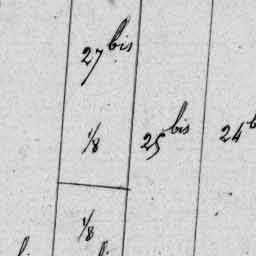 27 bis
1/8
25 bis
24 b
1/8